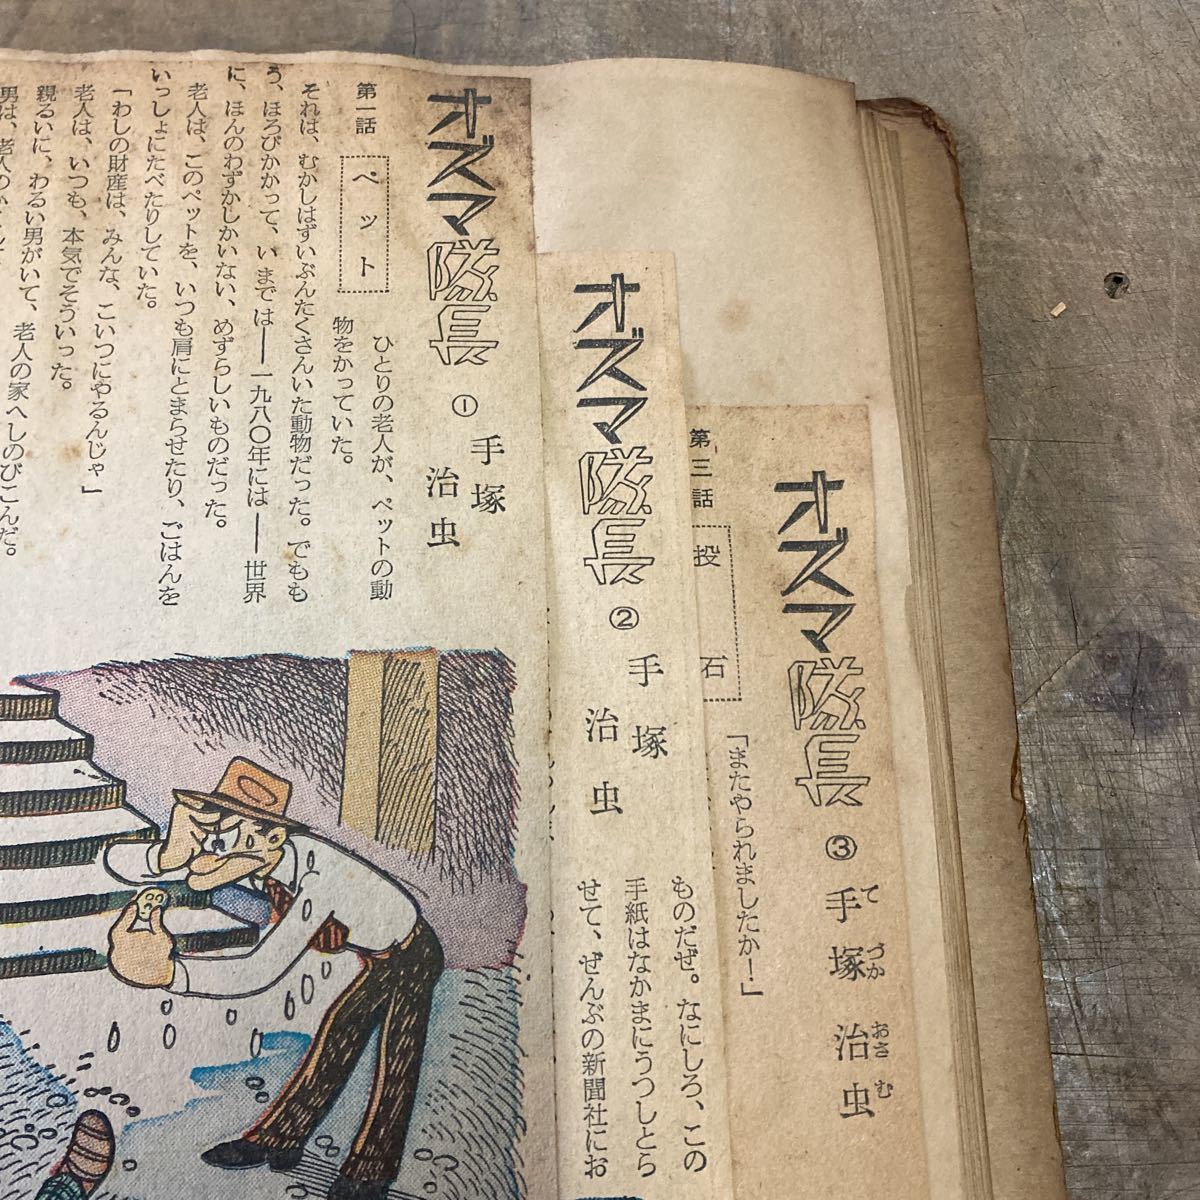 オズマ隊長③
手塚治虫
てづかおさむ
第三話
投石
「またやられましたか！」
オズマ隊長②
手塚治虫
ものだぜ。なにしろ、この
手紙はなかまにうつしとら
せて、ぜんぶの新聞社にお
オズマ隊長①
手塚治虫
第一話
ペット
ひとりの老人が、ペットの動
物をかっていた。
それは、むかしはずいぶんたくさんいた動物だった。でもも
う、ほろびかかって、いまでは――一九八〇年には――世界
に、ほんのわずかしかいない、めずらしいものだった。
老人は、このペットを、いつも肩にとまらせたり、ごはんを
いっしょにたべたりしていた。
「わしの財産は、みんな、こいつにやるんじゃ」
老人は、いつも、本気でそういった。
親るいに、わるい男がいて、老人の家へしのびこんだ。
男は、老人の